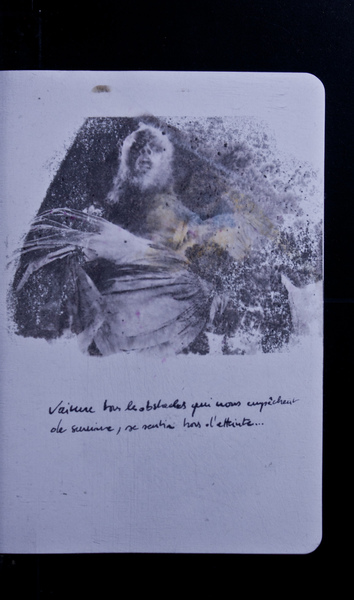 Vaincre tous les obstacles qui nous empêchent
de survivre, se sentir hors d'atteinte...